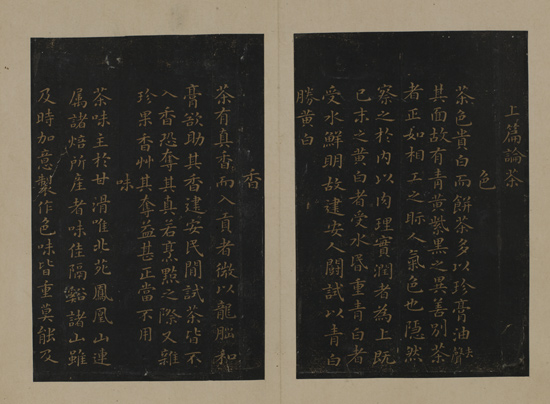 上篇論茶
色
茶色貴白而餅茶多以珍膏油去聲
其面故有青黃紫黑之異善別茶
者正如相工之眎人氣色也隱然
察之於內以肉理實潤者為上既
已末之黃白者受水昏重青白者
受水鮮明故建安人鬬試以青白
勝黃白
香
茶有真香而入貢者微以龍腦和
膏欲助其香建安民間試茶皆不
入香恐奪其真若烹點之際又雜
珍果香艸其奪益甚正當不用
味
茶味主於甘滑唯北苑鳳凰山連
屬諸焙所產者味佳隔谿諸山雖
及時加意製作色味皆重莫能及